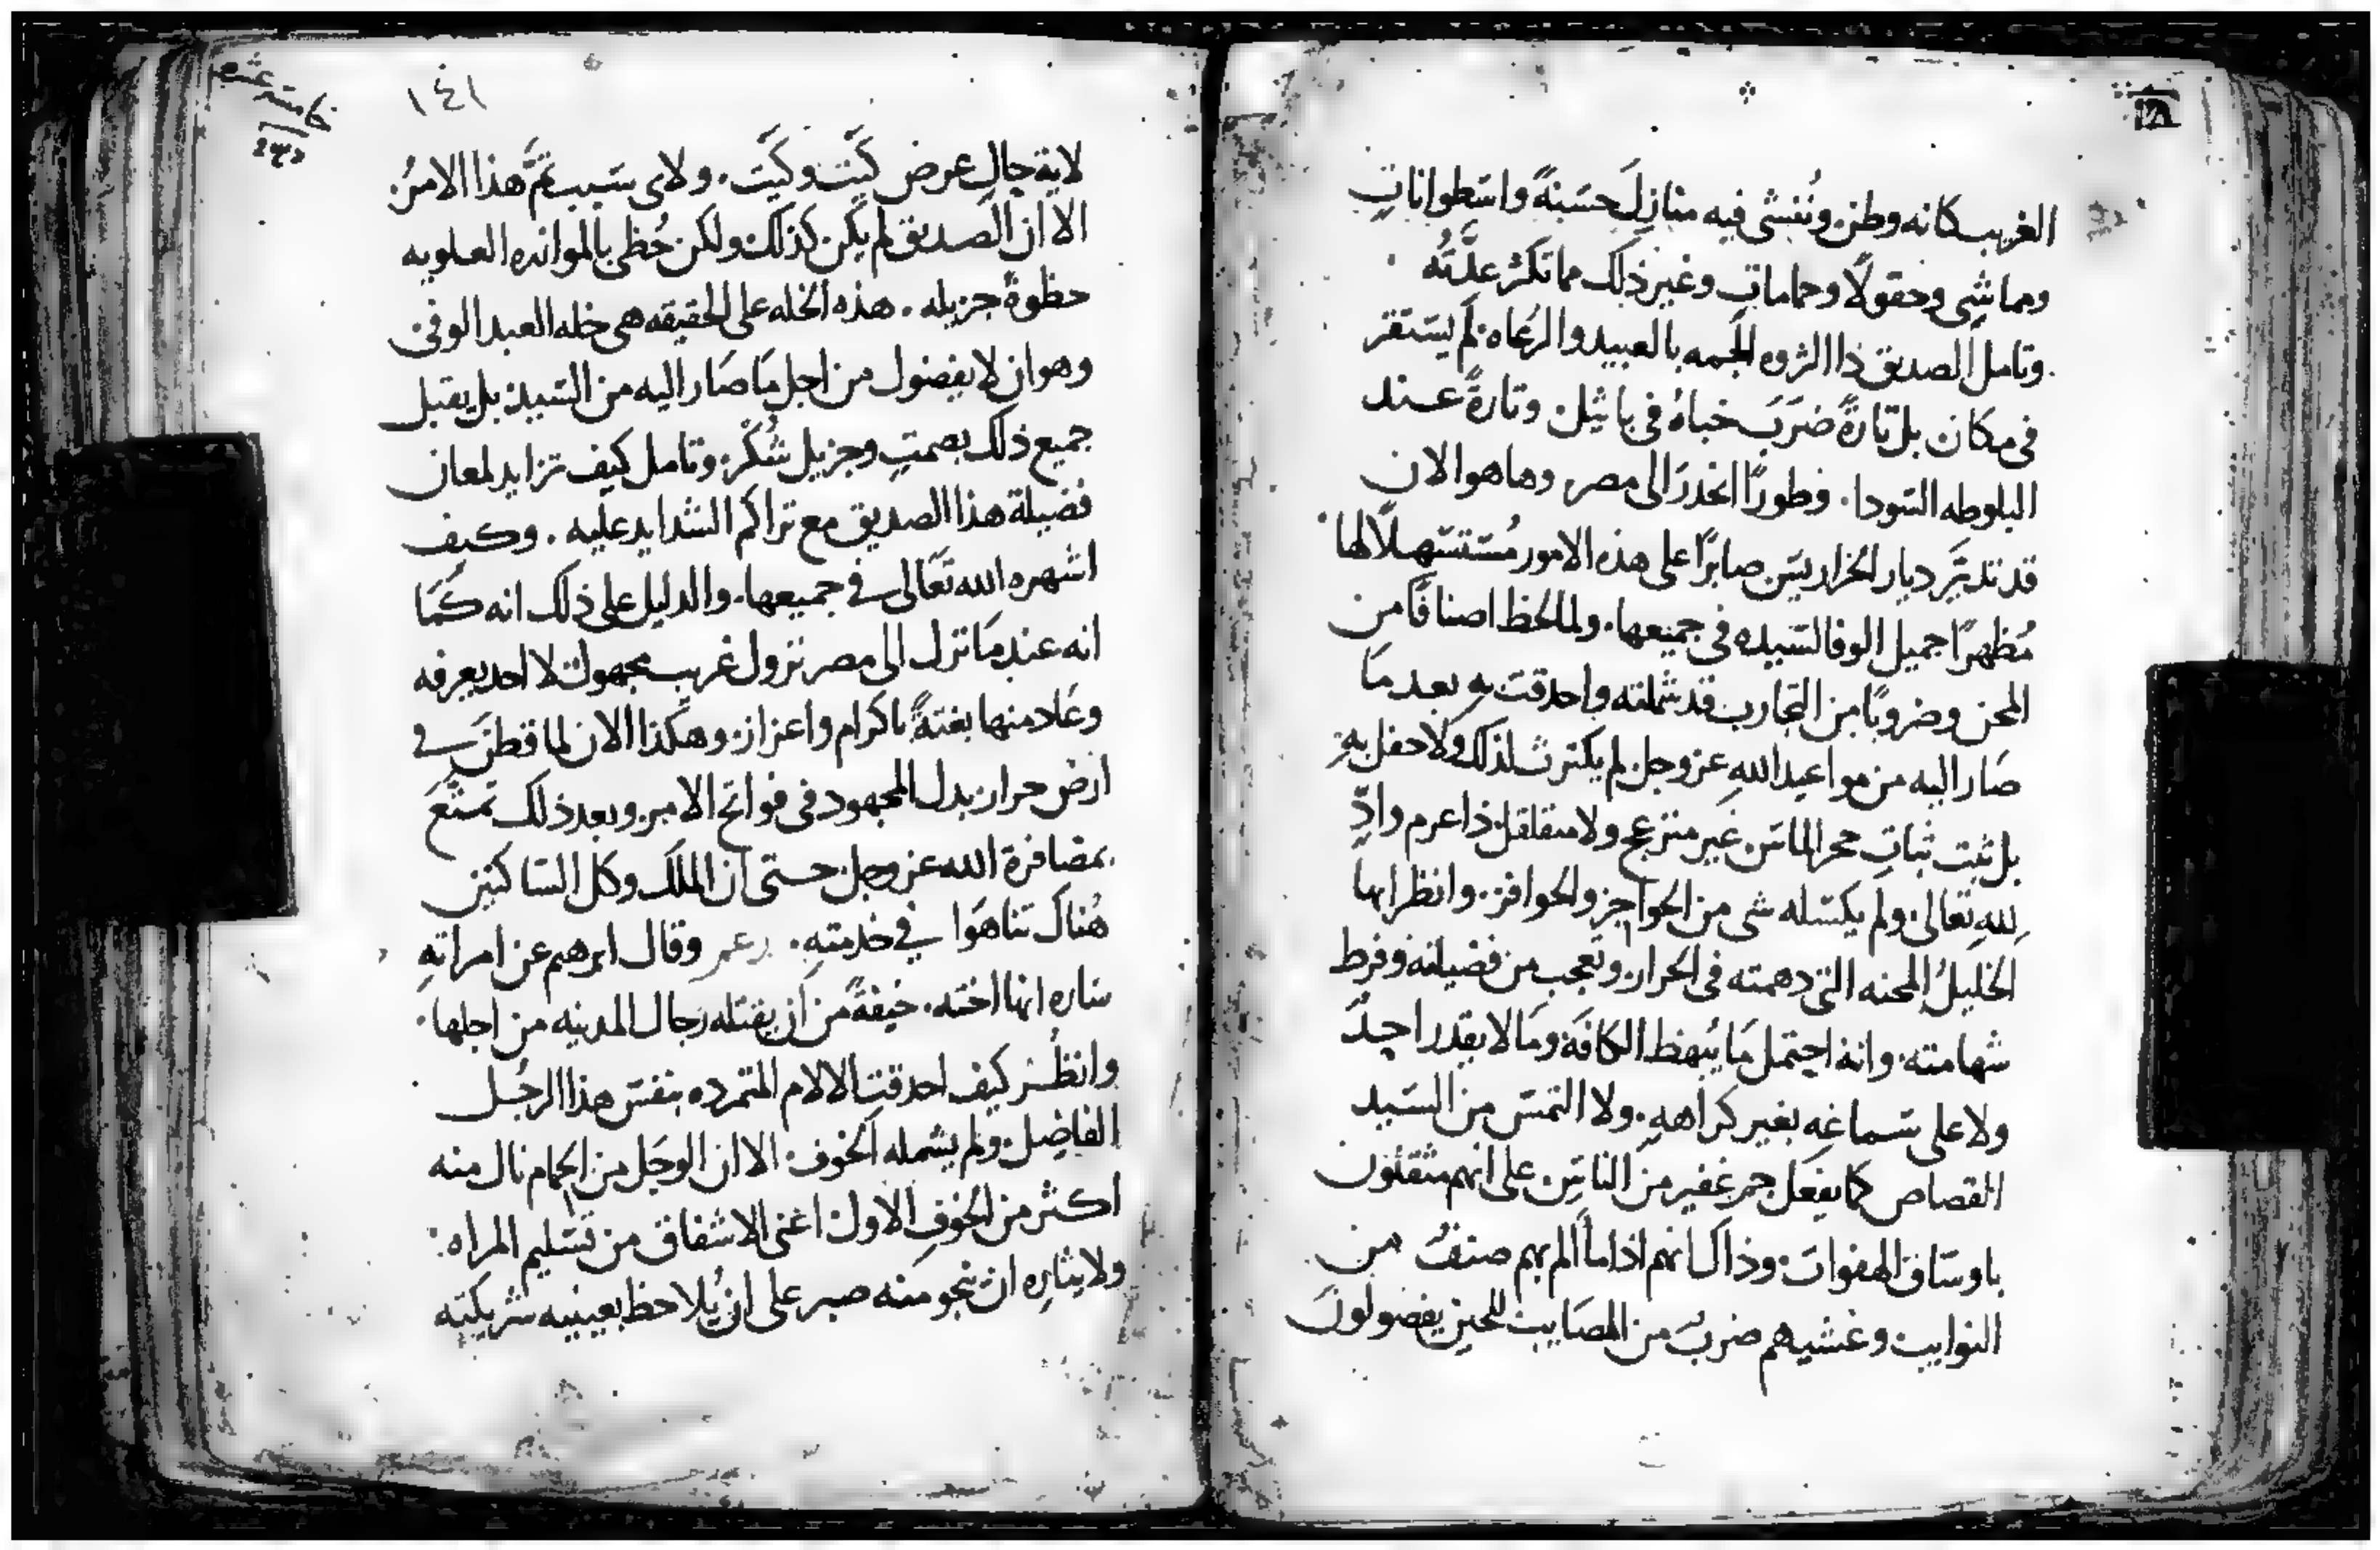 الغريب كانه وطن وننشى فيه منازل حسنةً واسطوانات
ومماشى وحقولًا وحمامات وغير ذلك مما تكثر علَّتُه
وتامل الصديق ذا الثروه الجمه بالعبيد والرعاه. لم يستقر
فى مكان بل تارةً ضرَبَ خباهُ فى باثيل. وتارةً عند
البلوطه السودا. وطورًا انحدرَ الى مصر. وها هو الان
قد تديَّر ديار الخراريسَ صابرًا على هذه الامور مُستسهلًا لها
مُظهرًا جميل الوفا لسيده فى جميعها. ولما لحظ اصنافًا من
المحن وضروبًا من التجارب قد شملته واحدقت به بعد ما
صار اليه من مواعيد الله عز وجل. لم يكترث لذلك ولا حفل بهِ
بل ثبت ثبات حجر الماس غير منزعج ولا متقلقل. ذا عرم وادٍّ
لله تعالى. ولم يكسله شى من الحواجز والحوافز. وانظر ايها
الخليلُ المحنه التى دهمته فى الحرار. وتعجب من فضيلته وفرط
شهامته. وانه احتمل ما يُبهظ الكافة وما لا يقدر احدٌ
ولا على سماعه بغير كراهه. ولا التمس من السيد
القصاص كما يفعل جم غفير من الناس على انهم مثقلون
باوساق الهفوات. وذاك انهم اذا ما الم بهم صنفٌ من
النوايب وغشيهم ضربٌ من المصايب للحين يفضولون
١٤١
خامسة عشر
لاية حال عرض كَيَّت وكَيَّت. ولاى سبب تمَّ هذا الامرُ.
الا ان الصديق لم يكن كذلك ولكن حُظى بالموانده العلويه
حظوةً جزيله. هذه الخله على الحقيقه هى خله العبد الوفى
وهو ان لا يفضول من اجل ما صار اليه من السيد. بل يقتبل
جميع ذلك بصمتٍ وجزيل شُكر. وتامل كيف تزايد لمعان
فضيلة هذا الصديق مع تراكم الشدايد عليه. وكيف
اشهره الله تعالى فى جميعها. والدليل على ذلك انه كما
انه عندما نزل الى مصر نزول غريب مجهول لا احد يعرفه
وعَاد منها بغتةً باكرام واعزاز. وهكذا الان لما قطنَ فى
ارض حرار. بدل المجهود فى فواتح الامر. وبعد ذلك تمتَّعَ
بمضافرة الله عز وجل. حتى ان الملك وكل الساكنين
هُناك تناهَوا فى خدمتهِ. وقال ابرهيم عن امراتهِ
ساره انها اخته. خيفةً من ان يقتله رجال المدينه من اجلها.
وانظُر كيف احدقت الالام المتمرده بنفس هذا الرجُل
الفاضِل. ولم يشمله الخوف. الا ان الوجَل من الحمام نال منه
اكثر من الخوفِ الاول. اعنى الاشفاق من تسليم المراه.
ولايثارهِ ان ينجو منه صبر على ان يُلاحظ بعينيه شريكته